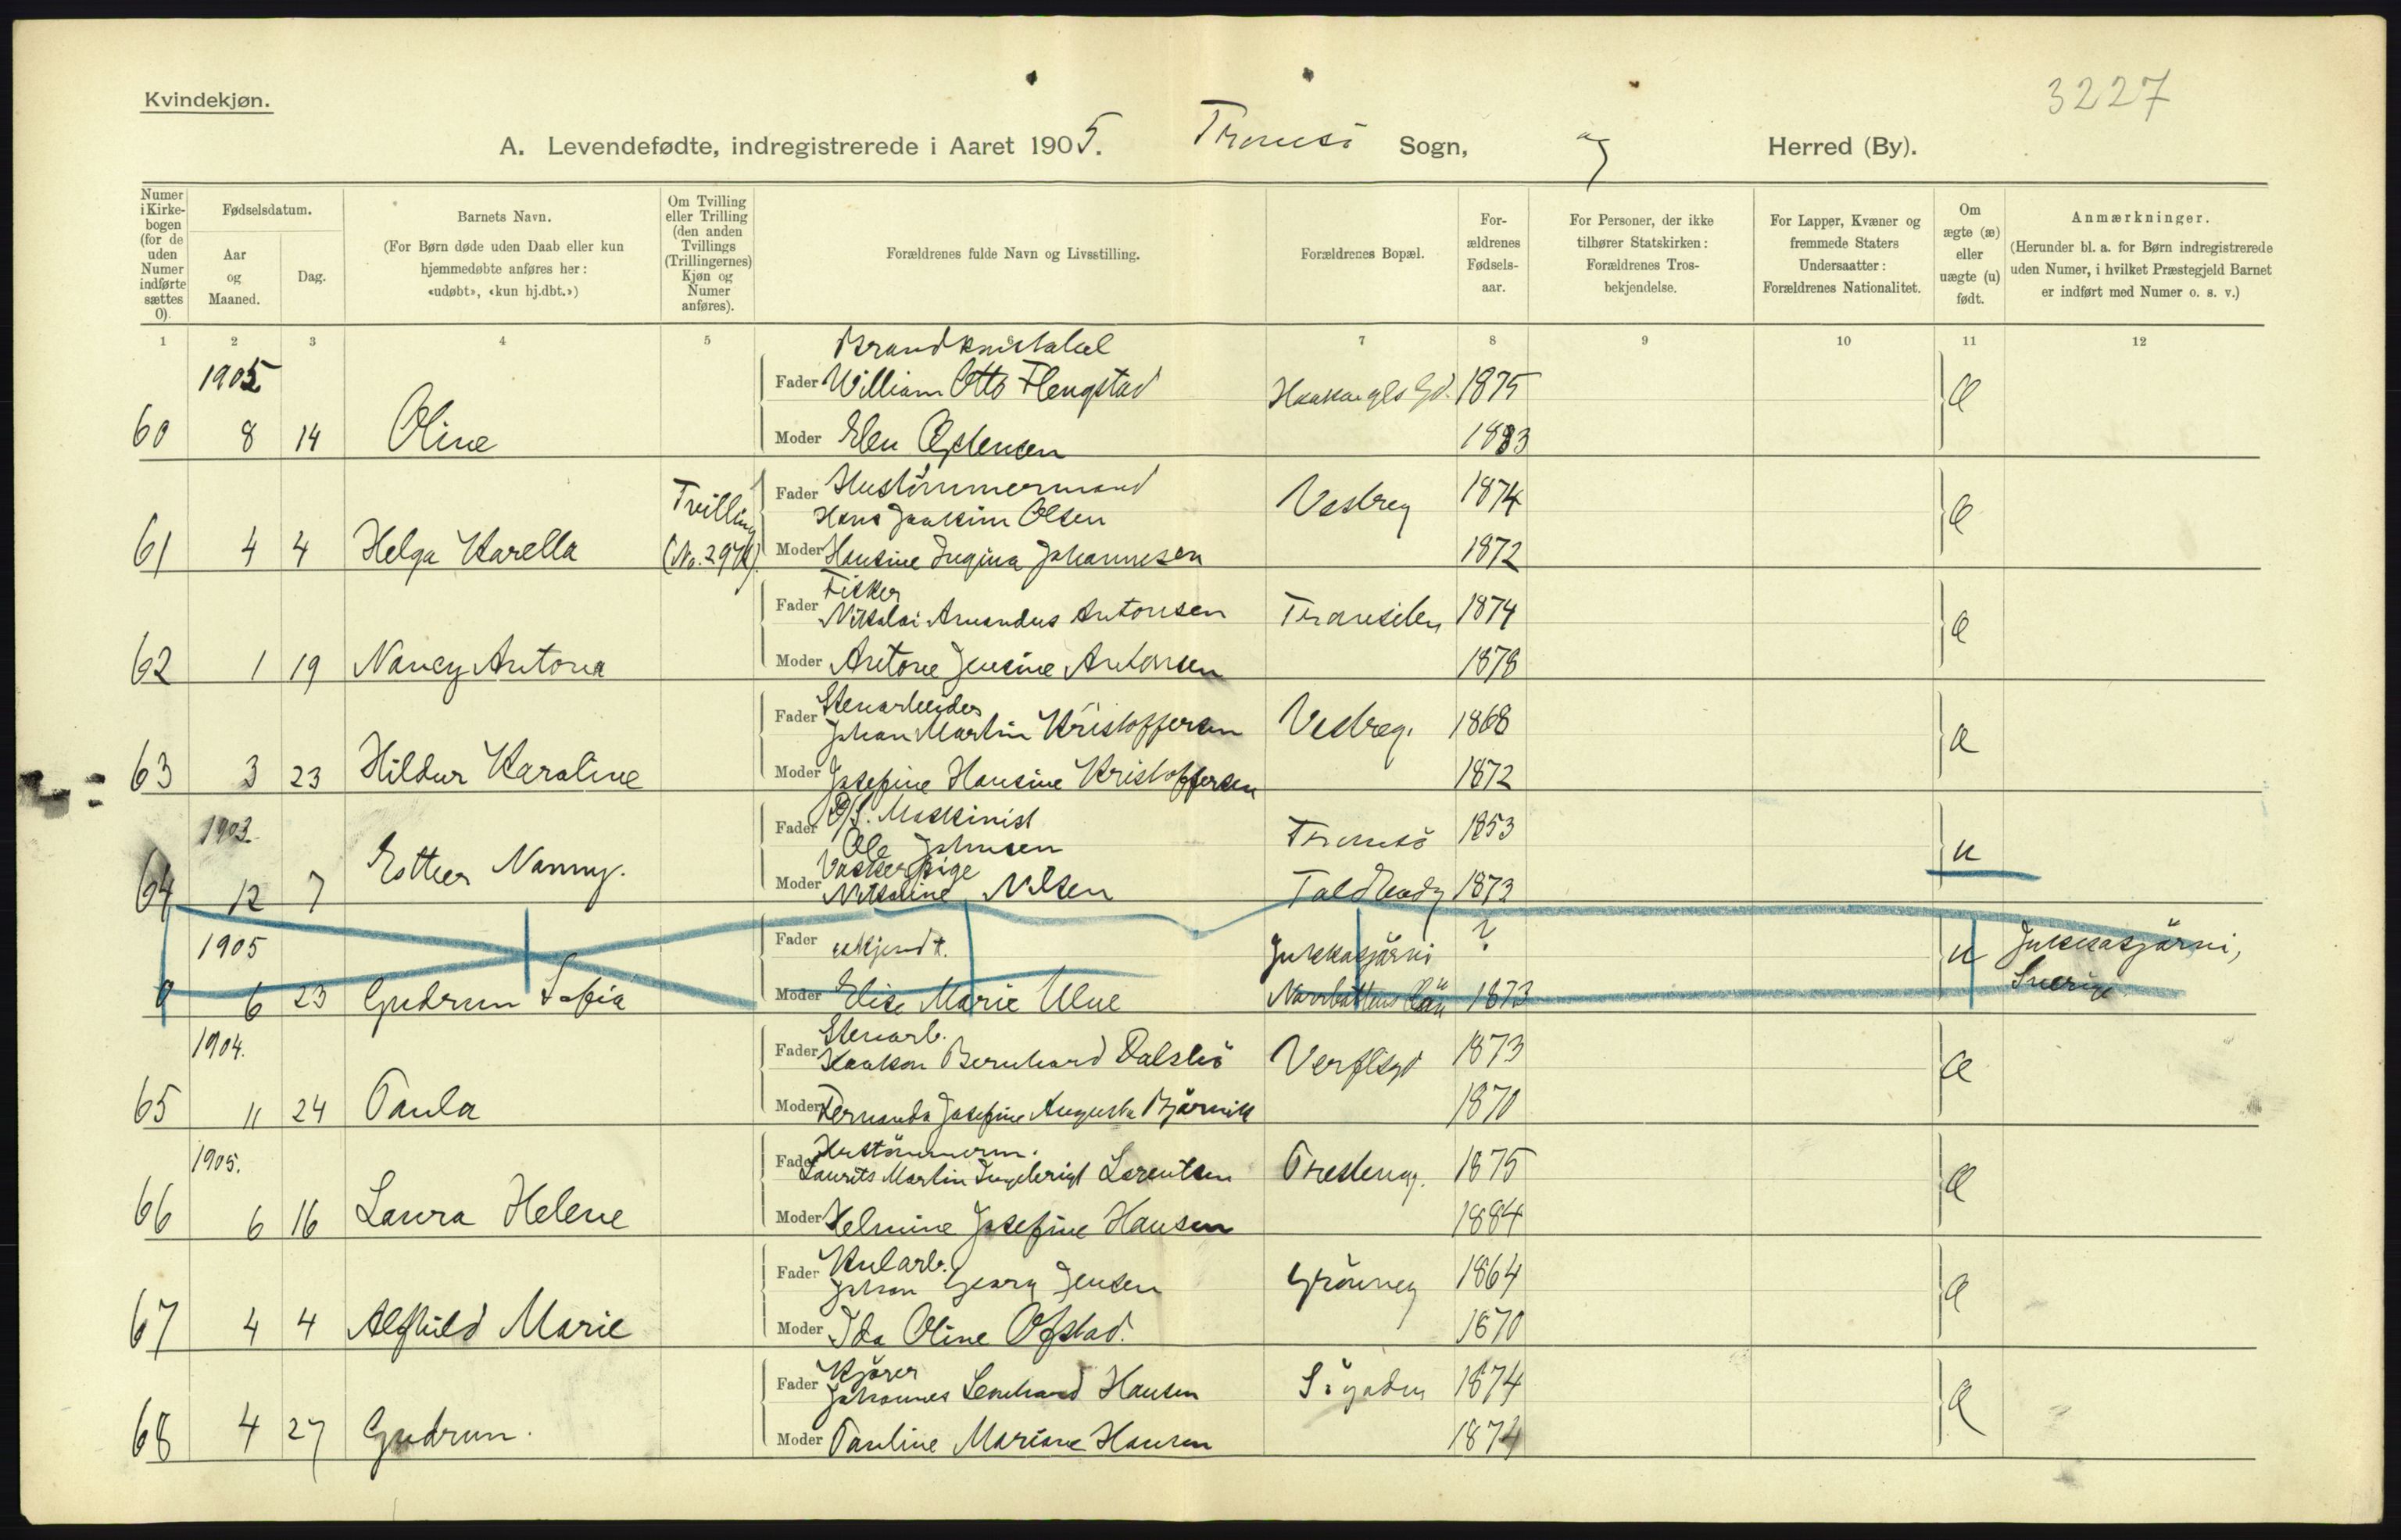 Kvindekjøn.
3227
A. Levendefødte, indregistrerede i Aaret 1905. Tromsö Sogn, og Herred (By).
Numer i Kirkebogen (for de uden Numer indførte sættes 0).
Fødselsdatum.
Aar og Maaned.
Dag.
Barnets Navn.
(For Børn døde uden Daab eller kun hjemmedøbte anføres her: «udøbt», «kun hj.dbt.»)
Om Tvilling eller Trilling (den anden Tvillings (Trillingernes) Kjøn og Numer anføres).
Forældrenes fulde Navn og Livsstilling.
Forældrenes Bopæl.
Forældrenes Fødselsaar.
For Personer, der ikke tilhører Statskirken: Forældrenes Trosbekjendelse.
For Lapper, Kvæner og fremmede Staters Undersaatter: Forældrenes Nationalitet.
Om ægte (æ) eller uægte (u) født.
Anmærkninger.
(Herunder bl. a. for Børn indregistrerede uden Numer, i hvilket Præstegjeld Barnet er indført med Numer o. s. v.)
1 2 3 4 5 6 7 8 9 10 11 12
1905
Brandkonstabel
Fader William Otto Flengstad 1875 æ
60 8 14 Oline Moder Elen 1883
Tvilling Fader Hustömmermand Vestreg 1874 æ
Hans Joakim Olsen
61 4 4 Helga Karella Moder Hansine Ingina Johannesen 1872
Fisker
Fader Nikolai Amandus Antonsen 1874 æ
62 1 19 Nancy Antona Moder Antone Jensine Antonsen 1878
Stenarbeider
Fader Johan Martin Kristoffersen Vestreg. 1868 æ
63 3 23 Hildur Karoline Moder Josefine Hansine Kristoffersen 1872
1903. D/S. Maskinist
Fader Ole Johnsen Tromsö 1853 u
Vaskerpige
64 12 7 Esther Nanny. Moder Nikoline Nilsen 1873
1905 Fader ukjendt. Jukkasjärvi ? u Jukkasjärvi, Sverige
0 6 23 Gudrun Sofia Moder Elise Marie Ulne Norrbottens Län 1873
1904. Stenarb.
Fader Haakon Bernhard Dalslö Verftsgd 1873 æ
65 11 24 Paula Moder Fernanda Josefine Augusta 1870
1905. Hustömmerm.
Fader Laurits Martin Ingebrigt Lorentsen 1875 æ
66 6 16 Laura Helene Moder Helmine Josefine Hansen 1884
Kularb.
Fader Johan Georg Jensen Grönneg 1864 æ
67 4 4 Alfhild Marie Moder Ida Oline Ofstad. 1870
Kjörer
Fader Johannes Leonhard Hansen Sögaden 1874 æ
68 4 27 Gudrun. Moder Pauline Mariane Hansen 1874